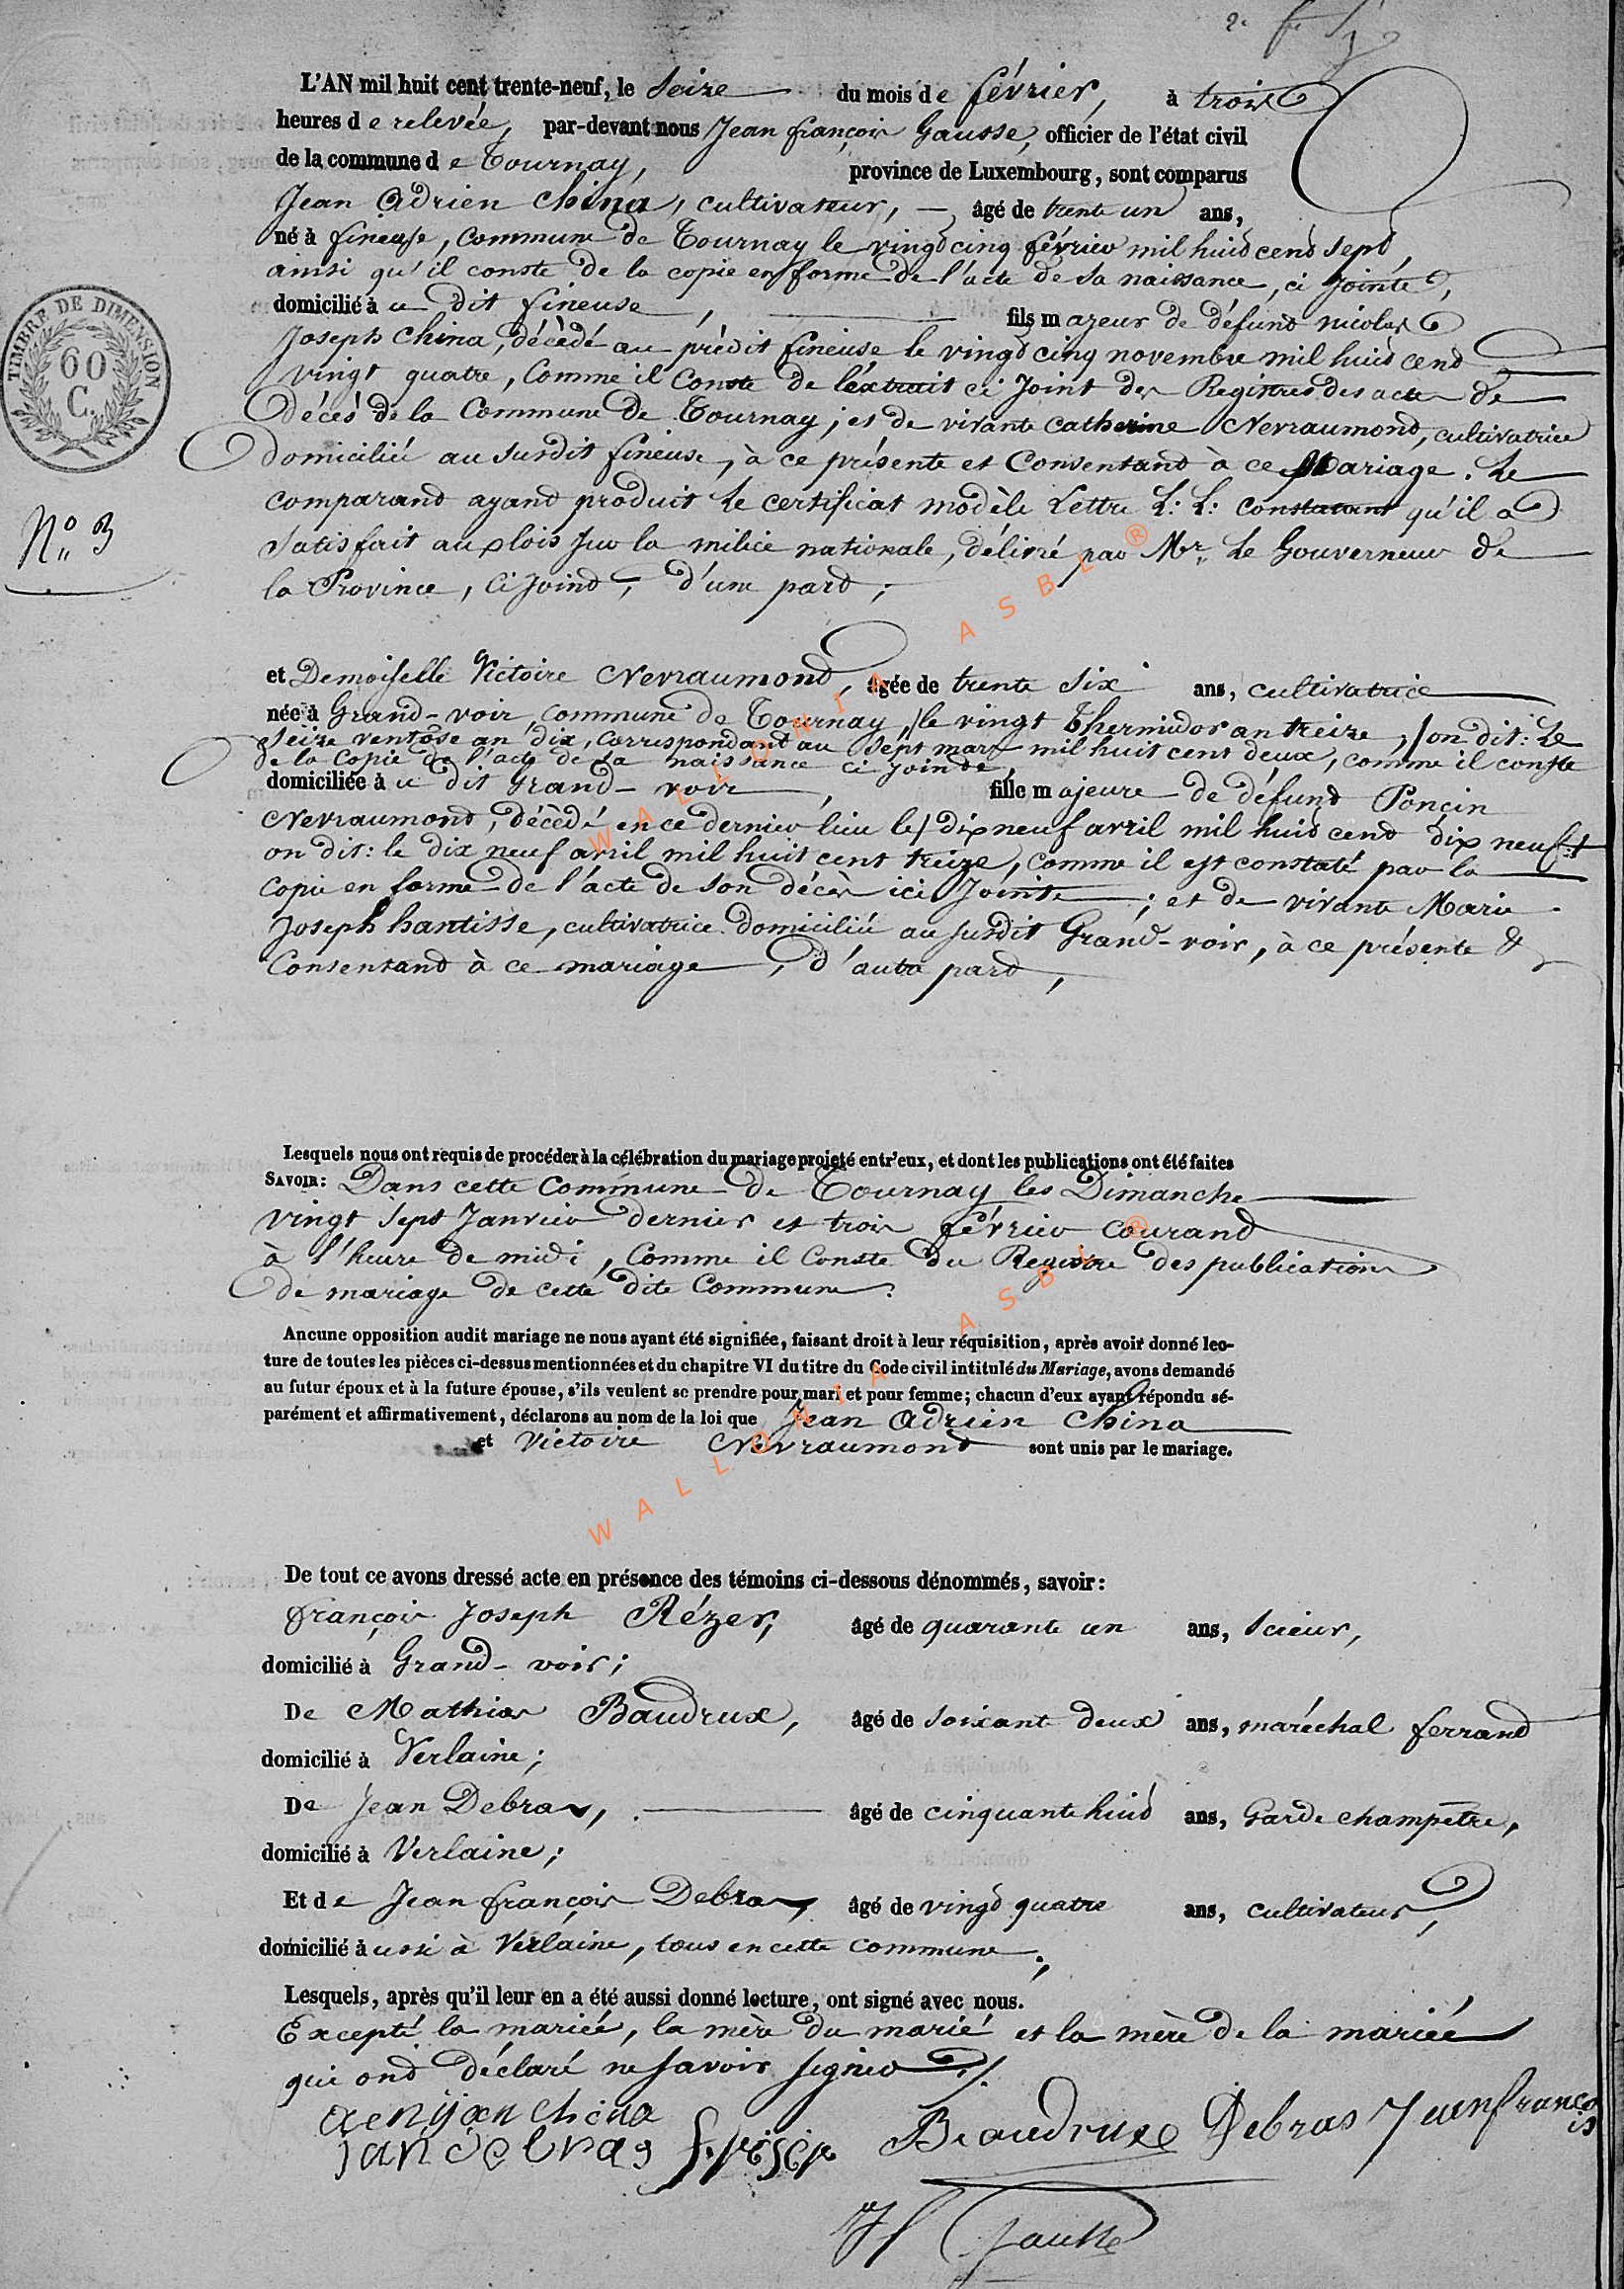 L'AN mil huit cent trente-neuf, le Seize du mois de février, à trois
heures de relevée, par-devant nous Jean françois Gausse, officier de l'état civil
de la commune de Tournay, province de Luxembourg, sont comparus
Jean Adrien China, cultivateur, — âgé de trente un ans,
né à fineuse, commune de Tournay le vingt cinq février mil huit cent sept,
ainsi qu'il conste de la copie en forme de l'acte de sa naissance, ci jointe,
domicilié à u dit fineuse, fils majeur de défunt nicolas
Joseph China, décédé au prédit fineuse le vingt cinq novembre mil huit cent
vingt quatre, Comme il Conste de l'extrait ci Joint des Registres des actes de
Décès de la Commune de Tournay; et de vivante Catherine Nevraumont, cultivatrice
domiciliée au susdit fineuse, à ce présente et Consentant à ce Mariage. Le
comparant ayant produit le certificat modèle Lettre L: L: Constatant qu'il a
Satisfait aux lois sur la milice nationale, délivré par Mr. Le Gouverneur de
la Province, Ci Joint, d'une part;
TIMBRE DE DIMENSION
60
C.
No. 3
et Demoiselle Victoire Nevraumont, âgée de trente Six ans, cultivatrice
née à Grand-voir, commune de Tournay, /le vingt Thermidor an treize,/ on dit: Le
Seize ventose an dix, correspondant au Sept mars mil huit cent deux, comme il conste
de la Copie de l'acte de sa naissance ci jointe,
domiciliée à u dit Grand-voir, fille majeure de défunt Poncin
Nevraumont, décédé en ce dernier lieu le/ dix neuf avril mil huit cent dix neuf
on dit: le dix neuf avril mil huit cent treize, comme il est constaté par la
copie en forme de l'acte de son décès ici Jointe; et de vivante Marie
Joseph hantisse, cultivatrice domiciliée au susdit Grand-voir, à ce présente &
Consentant à ce mariage, d'autre part,
Lesquels nous ont requis de procéder à la célébration du mariage projeté entr'eux, et dont les publications ont été faites
SAVOIR: Dans cette Commune de Tournay les Dimanche
vingt Sept Janvier dernier et trois février courant
à l'heure de midi, Comme il Conste du Registre des publications
de mariage de cette dite Commune.
Aucune opposition audit mariage ne nous ayant été signifiée, faisant droit à leur réquisition, après avoir donné lec-
ture de toutes les pièces ci-dessus mentionnées et du chapitre VI du titre du Code civil intitulé du Mariage, avons demandé
au futur époux et à la future épouse, s'ils veulent se prendre pour mari et pour femme; chacun d'eux ayant répondu sé-
parément et affirmativement, déclarons au nom de la loi que Jean Adrien China
et Victoire Nevraumont sont unis par le mariage.
De tout ce avons dressé acte en présence des témoins ci-dessous dénommés, savoir:
françois Joseph Rézer, âgé de quarante un ans, Scieur,
domicilié à Grand-voir;
De Mathias Baudrux, âgé de soixante deux ans, maréchal ferrant
domicilié à Verlaine;
De Jean Debras, âgé de cinquante huit ans, Garde champêtre,
domicilié à Verlaine;
Et de Jean françois Debras, âgé de vingt quatre ans, cultivateur,
domicilié aussi à Verlaine, tous en cette commune;
Lesquels, après qu'il leur en a été aussi donné lecture, ont signé avec nous.
Excepté la mariée, la mère du marié et la mère de la mariée
qui ont déclaré ne savoir signer ./.
china
jan debras Beaudruxe Debras Jean françois
Jf Gausse
WALLONIA ASBL ®
WALLONIA ASBL ®